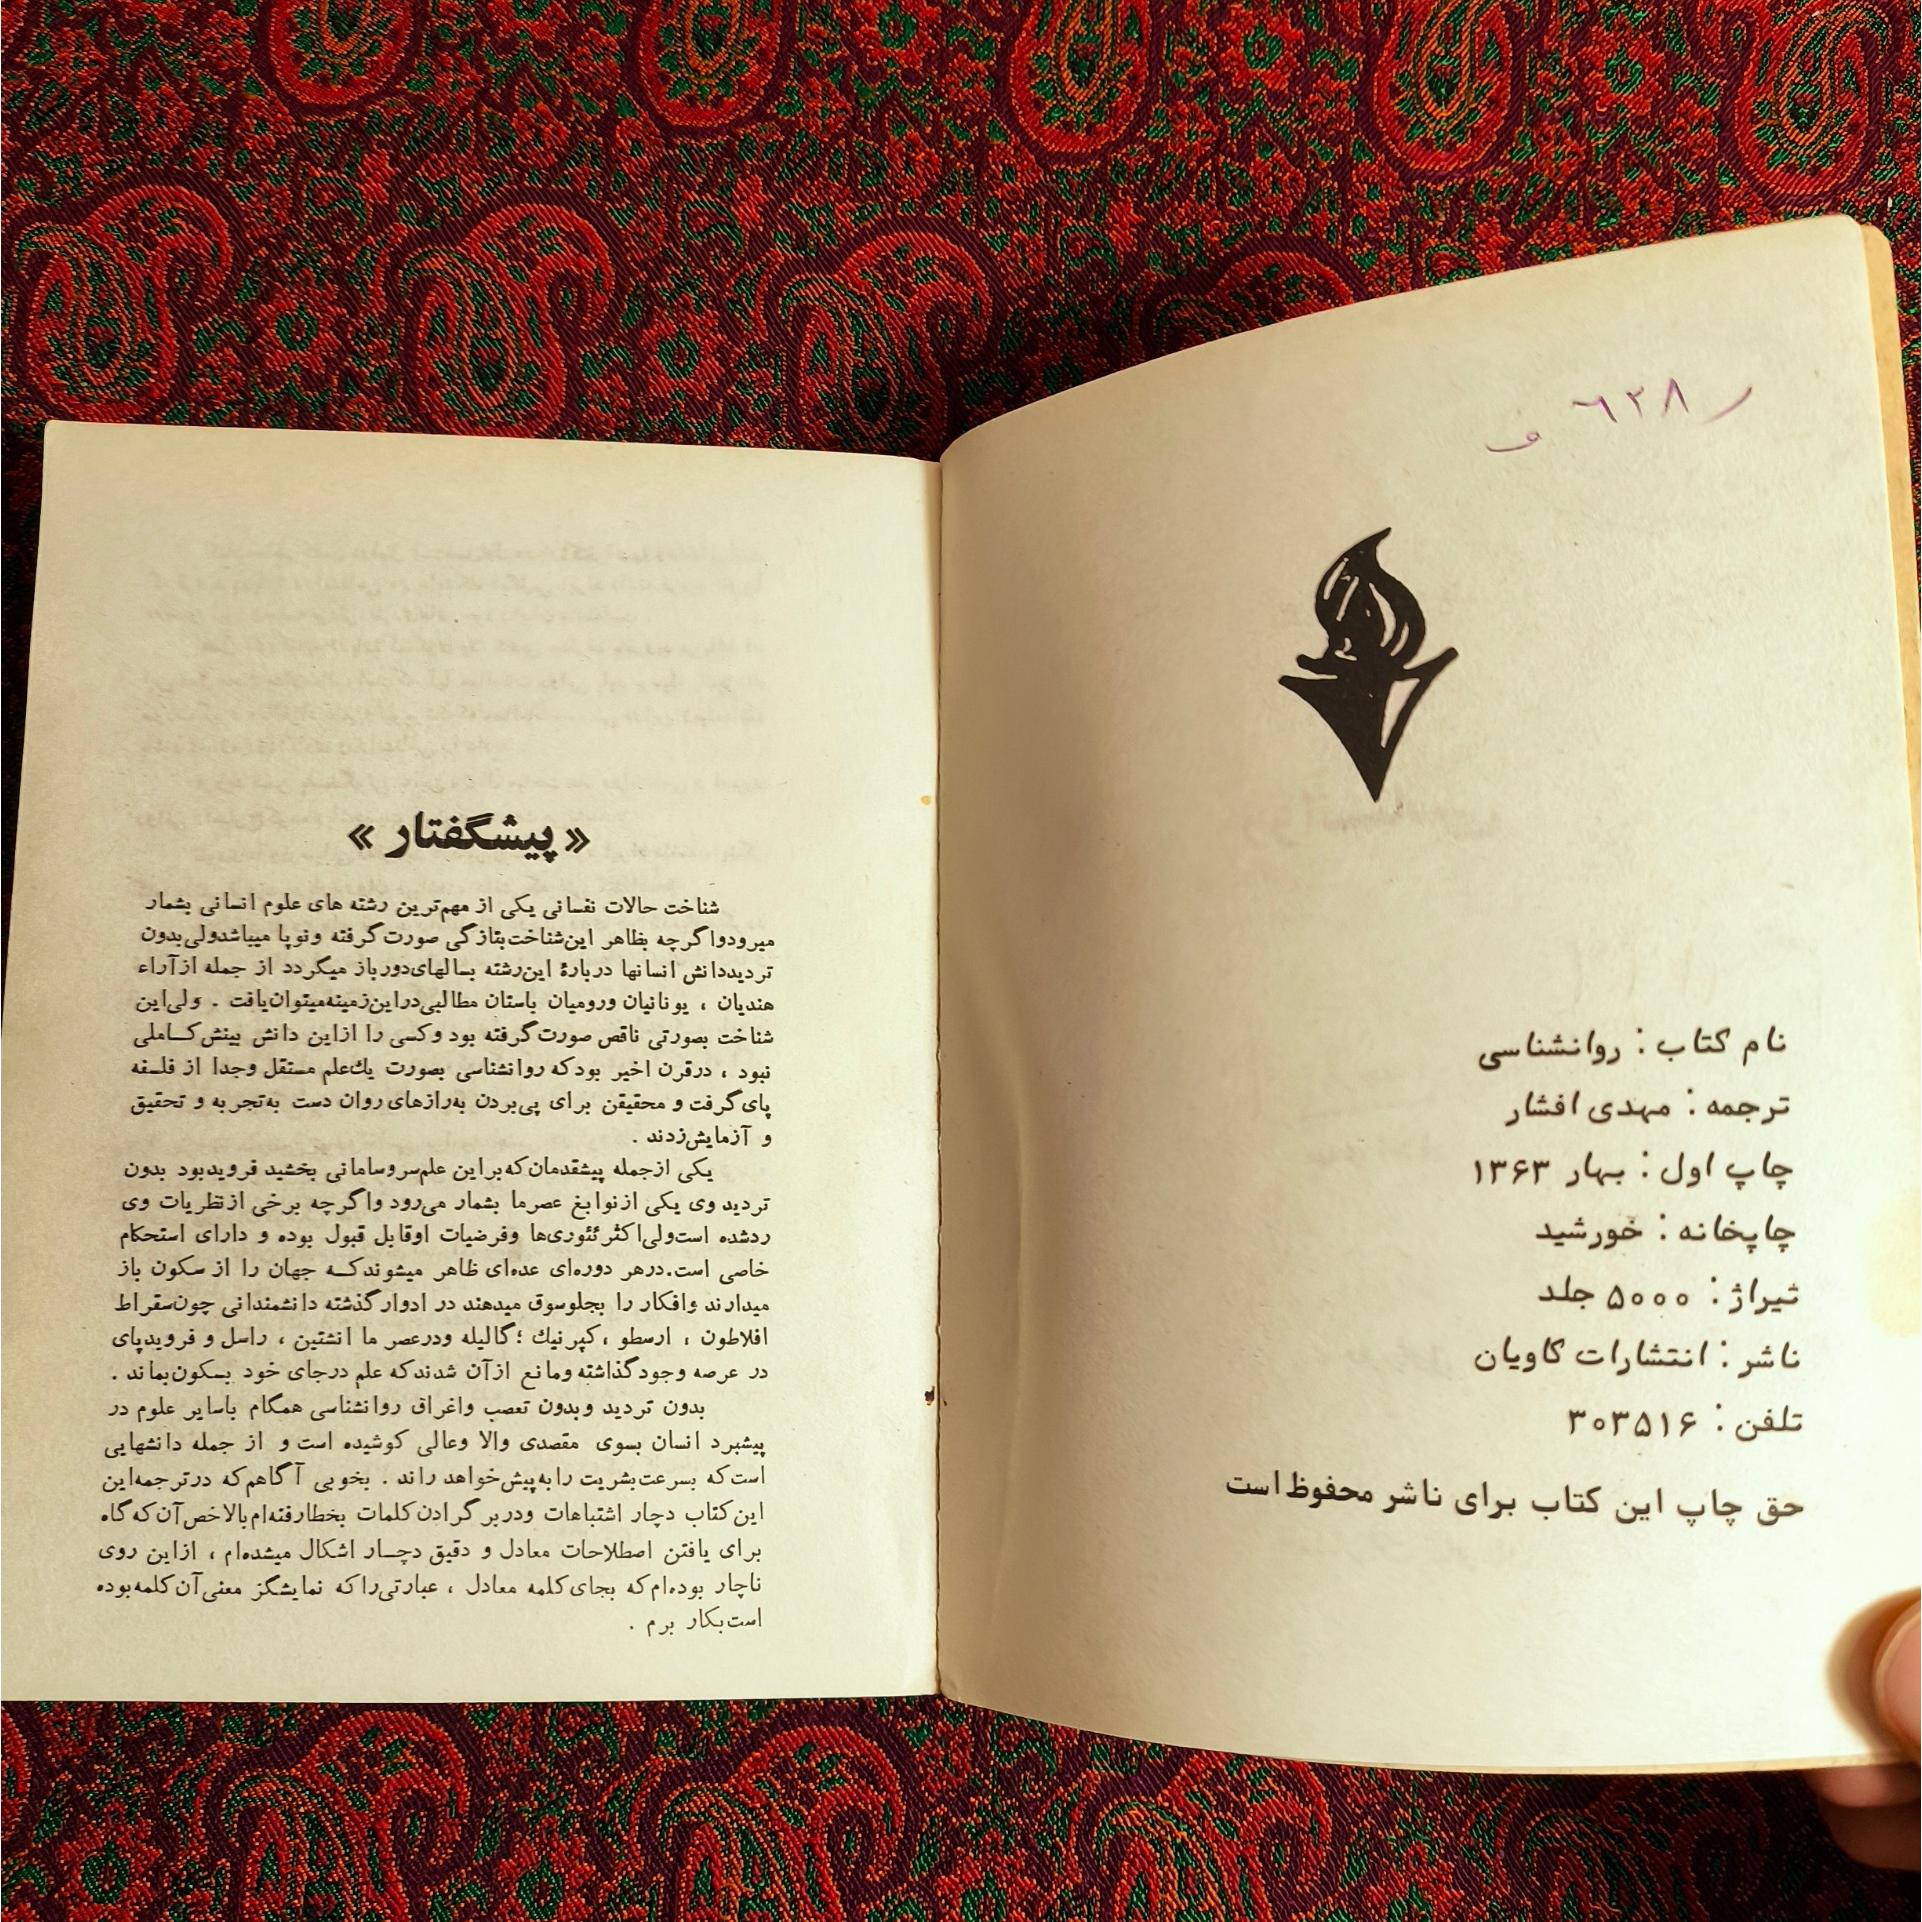 ر ٦٢٨
و
نام کتاب : روانشناسی
ترجمه : مهدی افشار
چاپ اول : بهار ۱۳۶۳
چاپخانه : خورشید
تیراژ : ۵۰۰۰ جلد
ناشر : انتشارات کاویان
تلفن : ۳۰۳۵۱۶
حق چاپ این کتاب برای ناشر محفوظ است
«پیشگفتار»
شناخت حالات نفسانی یکی از مهم‌ترین رشته های علوم انسانی بشمار
میرودواگرچه بظاهر این‌شناخت‌بتازگی صورت‌گرفته ونوپا میباشدولی‌بدون
تردیددانش انسانها دربارهٔ این‌رشته بسالهای‌دورباز میگردد از جمله ازآراء
هندیان ، یونانیان ورومیان باستان مطالبی‌دراین‌زمینه‌میتوان‌یافت . ولی‌این
شناخت بصورتی ناقص صورت‌گرفته بود وکسی را ازاین دانش بینش‌کـاملی
نبود ، درقرن اخیر بودکه روانشناسی بصورت یك‌علم مستقل وجدا از فلسفه
پای‌گرفت و محقیقن برای پی‌بردن به‌رازهای روان دست به‌تجربه و تحقیق
و آزمایش‌زدند .
یکی ازجمله پیشقدمان‌که‌براین علم‌سروسامانی بخشید فرویدبود بدون
تردید وی یکی ازنوابغ عصرما بشمار می‌رود واگرچه برخی ازنظریات وی
ردشده است‌ولی‌اکثرتئوری‌ها وفرضیات اوقابل قبول بوده و دارای استحکام
خاصی است.درهر دوره‌ای عده‌ای ظاهر میشوندکـه جهان را از سکون باز
میدارند وافکار را بجلوسوق میدهند در ادوارگذشته دانشمندانی چون‌سقراط
افلاطون ، ارسطو ، کپرنیك ؛گالیله ودرعصر ما انشتین ، راسل و فرویدپای
در عرصه وجودگذاشته ومانع ازآن شدندکه علم درجای خود بسکون‌بماند .
بدون تردید وبدون تعصب واغراق روانشناسی همگام باسایر علوم در
پیشبرد انسان بسوی مقصدی والا وعالی کوشیده است و از جمله دانشهایی
است‌که بسرعت‌بشریت را به‌پیش‌خواهد راند . بخوبی آگاهم‌که درترجمه‌این
این‌کتاب دچار اشتباهات ودربرگرادن‌کلمات بخطارفته‌ام‌بالاخص‌آن‌که‌گاه
برای یافتن اصطلاحات معادل و دقیق دچـار اشکال میشده‌ام ، ازاین روی
ناچار بوده‌ام‌که بجای‌کلمه معادل ، عبارتی‌راکه نمایشگز معنی‌آن‌کلمه‌بوده
است‌بکار برم .